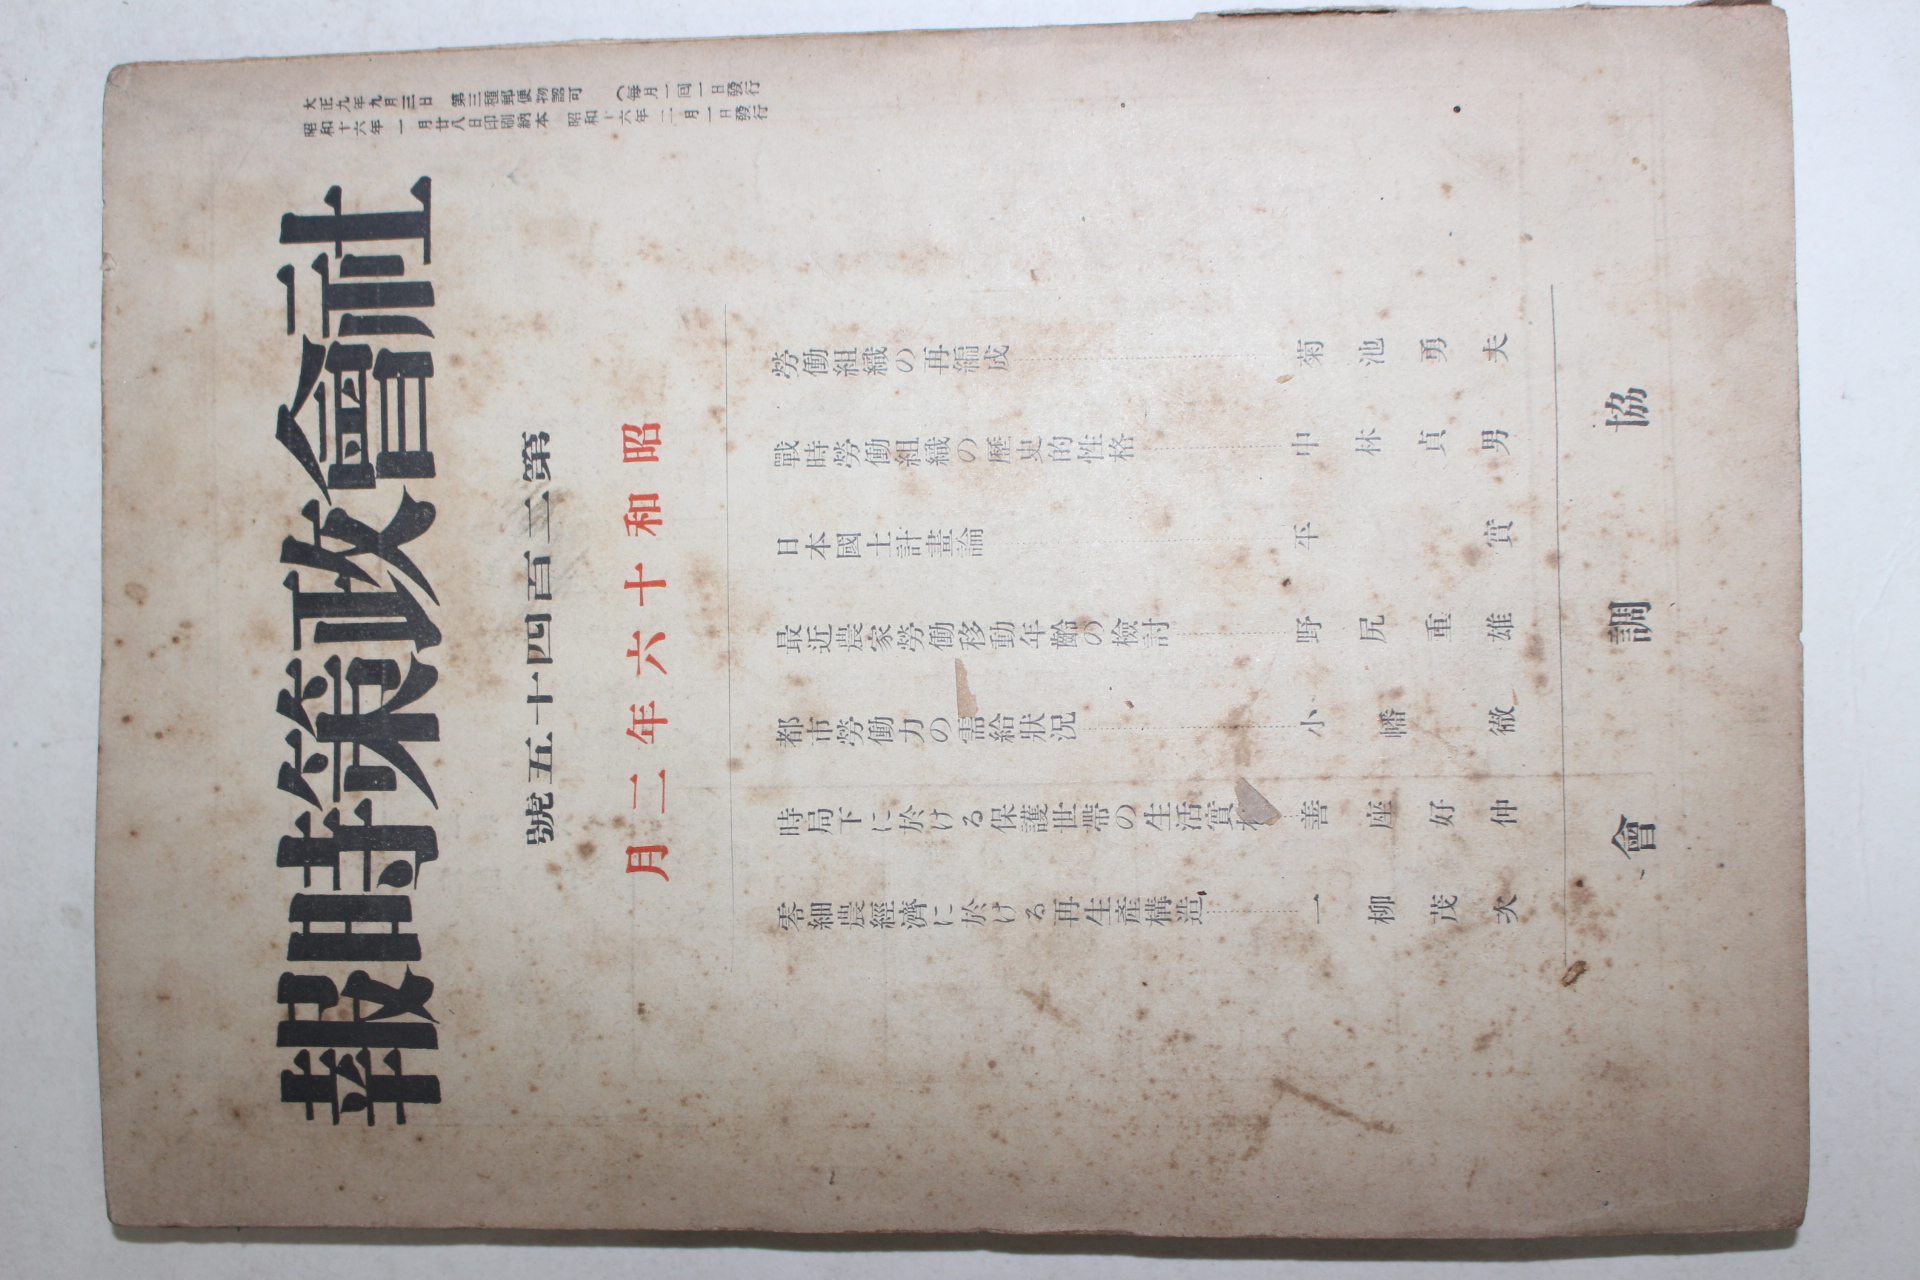 大正九年九月三日 第三種郵便物認可 (每月一回一日發行
昭和十六年一月廿八日印刷納本 昭和十六年二月一日發行
社會政策時報
第二百四十五號
昭和十六年二月
勞働組織の再編成……菊池勇夫
戰時勞働組織の歷史的性格……中林貞男
日本國土計畫論……平實
最近農家勞働移動年齡の檢討……野尻重雄
都市勞働力の需給狀況……小幡徹
時局下に於ける保護世帶の生活實……善座好仲
零細農經濟に於ける再生產構造……一柳茂次
協調會